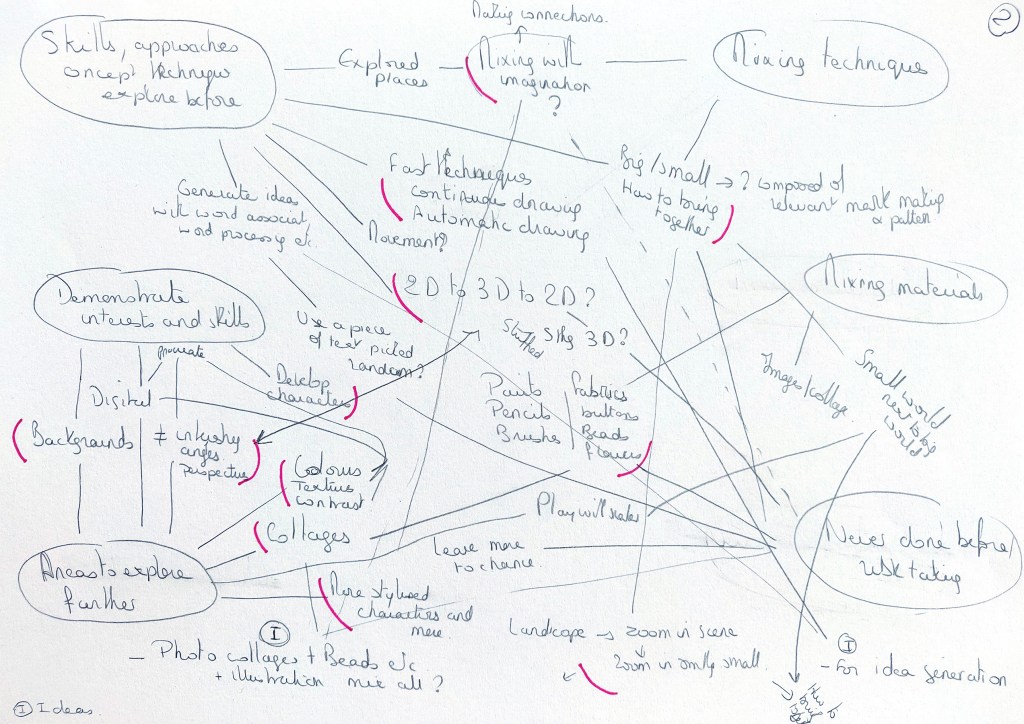 Making connections.
2
Skills, approaches
concept techniques
explore before
Explored
places
Mixing with
imagination
?
Mixing techniques
Fast techniques
continuous drawing
Automatic drawing
Movement?
Big/small → ? composed of
How to bring
together
relevant mark making
& pattern
Generate ideas
with word associat.
word processing etc.
2D to 3D to 2D?
Stuffed Sthg 3D?
Mixing materials
Demonstrate
interests and skills
Use a piece
of text picked
random?
procreate
Develop
characters
Digital
Backgrounds
≠ intriguing
angles
Perspective
Colours
Textures
contrast
Collages
Paints
Pencils
Brushes
fabrics
buttons
Beads
flowers
Images/collage
Small world
next to big
world
Play with scales
Leave more
to chance.
Never done before/
risk taking
Areas to explore
further
More stylised
characters and
more.
I
- Photo collages + Beads etc
+ illustration mix all?
Landscape → zoom in scene
Zoom in smthg small.
I
- For idea generation
How to
bring
I Ideas.